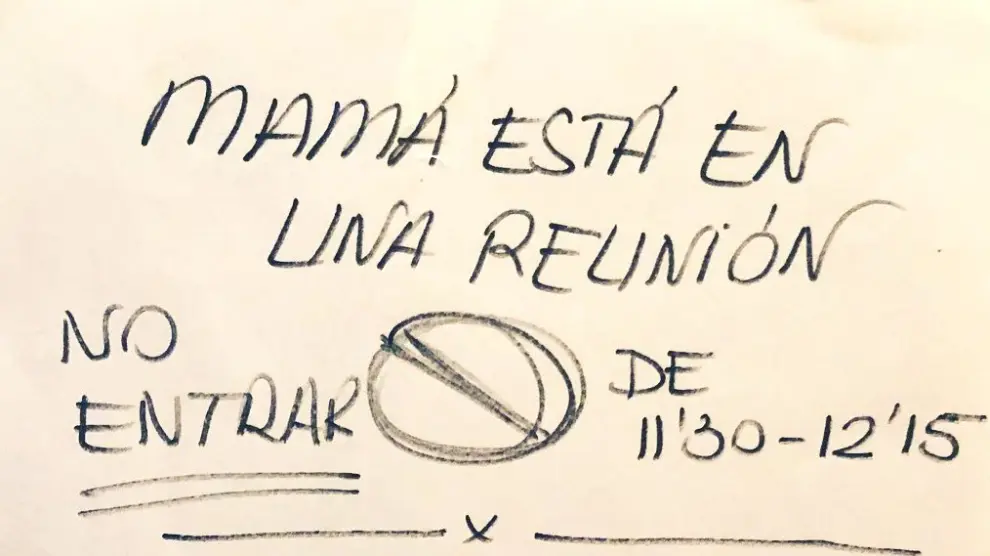 MAMÁ ESTÁ EN
UNA REUNIÓN
NO
ENTRAR
DE
11'30-12'15
x